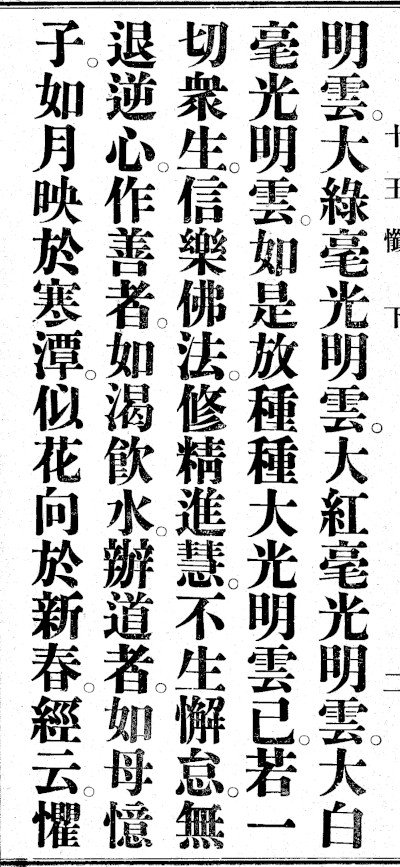 十王懺 下 二
明雲。大綠毫光明雲。大紅毫光明雲。大白
毫光明雲。如是放種種大光明雲已。若一
切衆生。信樂佛法。修精進慧。不生懈怠。無
退逆心。作善者。如渴飲水。辦道者。如母憶
子。如月映於寒潭。似花向於新春。經云。懼